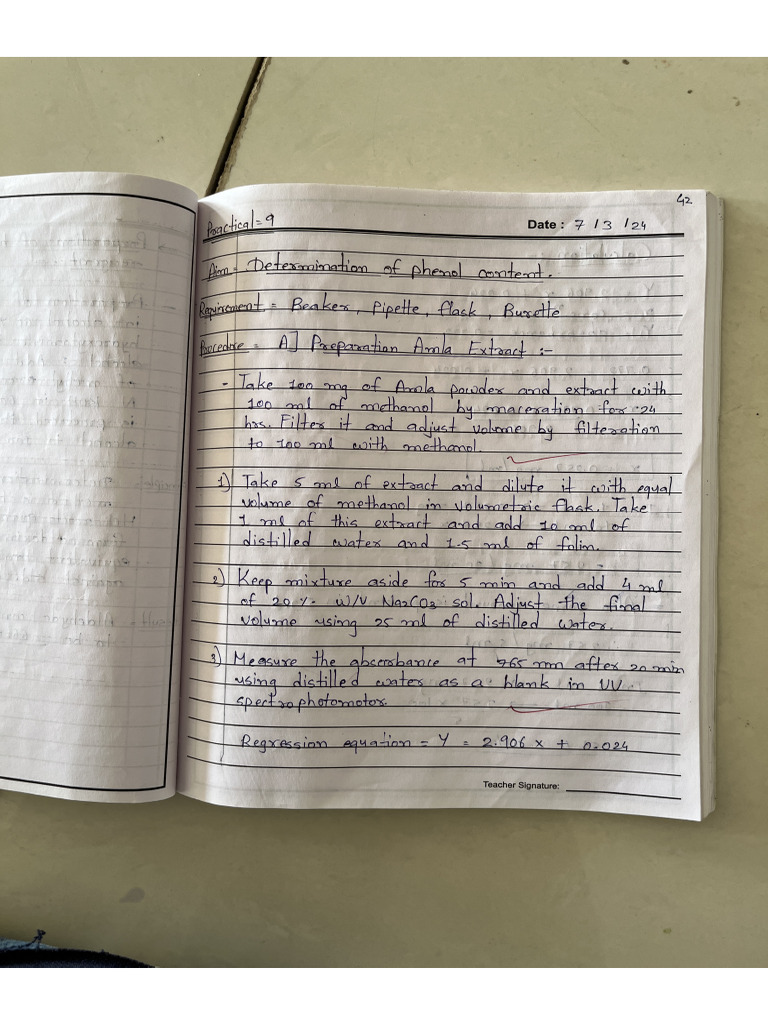 42
Practical = 9
Date : 7 / 3 / 24
Aim = Determination of phenol content.
Requirement = Beaker, Pipette, flask, Burette
Procedure = A] Preparation Amla Extract :-
- Take 100 mg of Amla powder and extract with
100 ml of methanol by maceration for 24
hrs. Filter it and adjust volume by filteration
to 100 ml with methanol.
1) Take 5 ml of extract and dilute it with equal
volume of methanol in volumetric flask. Take
1 ml of this extract and add 10 ml of
distilled water and 1.5 ml of folin.
2) Keep mixture aside for 5 min and add 4 ml
of 20 %. W/V Na2CO3 sol. Adjust the final
volume using 25 ml of distilled water.
3) Measure the absorbance at 765 nm after 20 min
using distilled water as a blank in UV
spectrophotomotor.
Regression equation = Y = 2.906 x + 0.024
Teacher Signature: